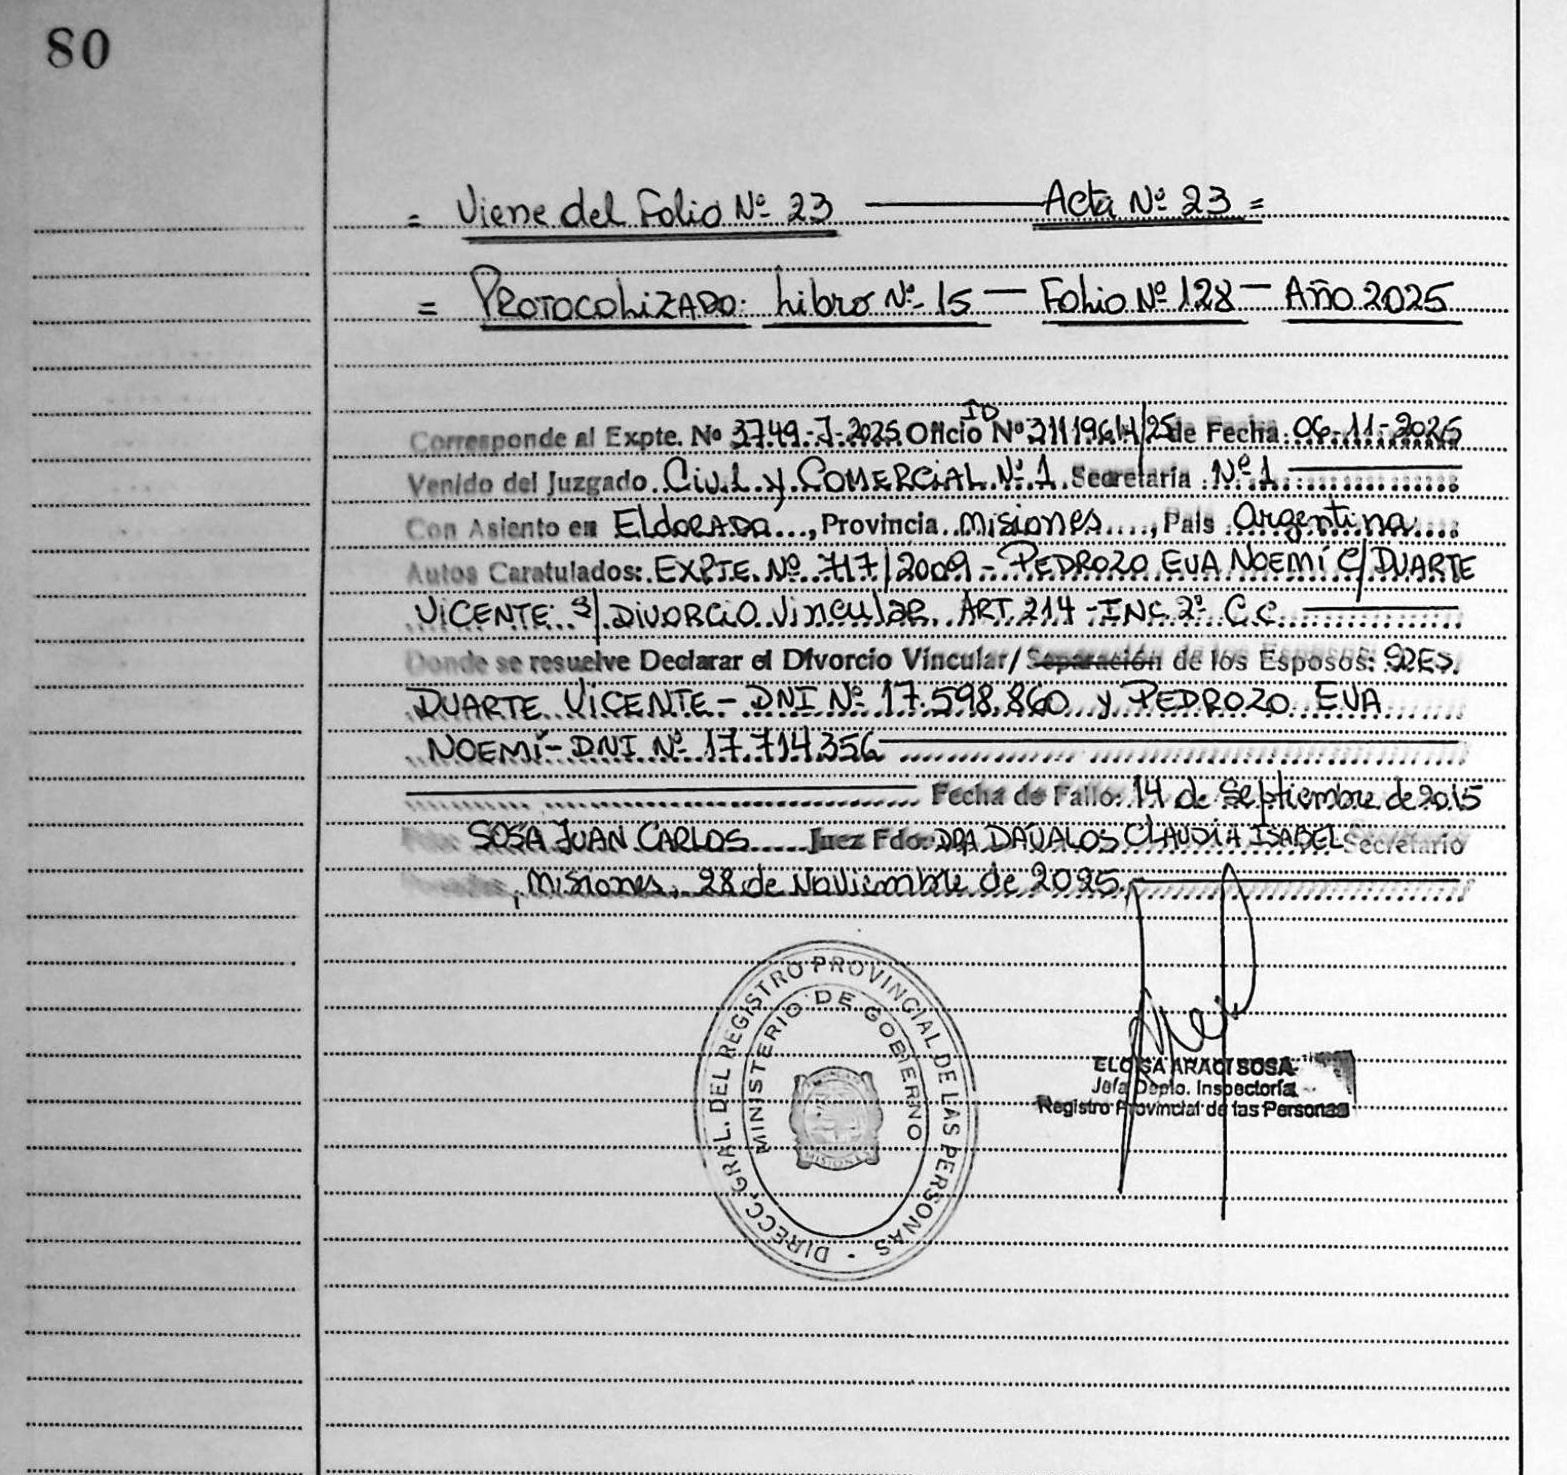 80
= Viene del Folio Nº 23 — Acta Nº 23 =
= PROTOCOLIZADO: Libro Nº 15 — Folio Nº 128 — Año 2025
Corresponde al Expte. Nº 3749-7-2025 Oficio ID Nº 31119614/25 de Fecha 06-11-2025
Venido del Juzgado Civil y COMERCIAL Nº 1 Secretaría Nº 1
Con Asiento en ELDORADO, Provincia Misiones, País Argentina
Autos Caratulados: EXPTE. Nº 717/2009 - PEDROZO EVA NOEMÍ C/ DUARTE
VICENTE S/ DIVORCIO Vincular ART. 214 - INC. 2º C.C.
Donde se resuelve Declarar el Divorcio Vincular/Separación de los Esposos: SRES.
DUARTE VICENTE - DNI Nº 17.598.860 y PEDROZO EVA
NOEMÍ - DNI Nº 17.714.356
Fecha de Fallo: 14 de Septiembre de 2015
Fdo: SOSA JUAN CARLOS Juez Fdo: DRA DAVALOS CLAUDIA ISABEL Secretario
Posadas, Misiones, 28 de Noviembre de 2025
DIRECC. GRAL. DEL REGISTRO PROVINCIAL DE LAS PERSONAS
MINISTERIO DE GOBIERNO
MISIONES
ELOISA ARACI SOSA
Jefa Depto. Inspectoría
Registro Provincial de las Personas